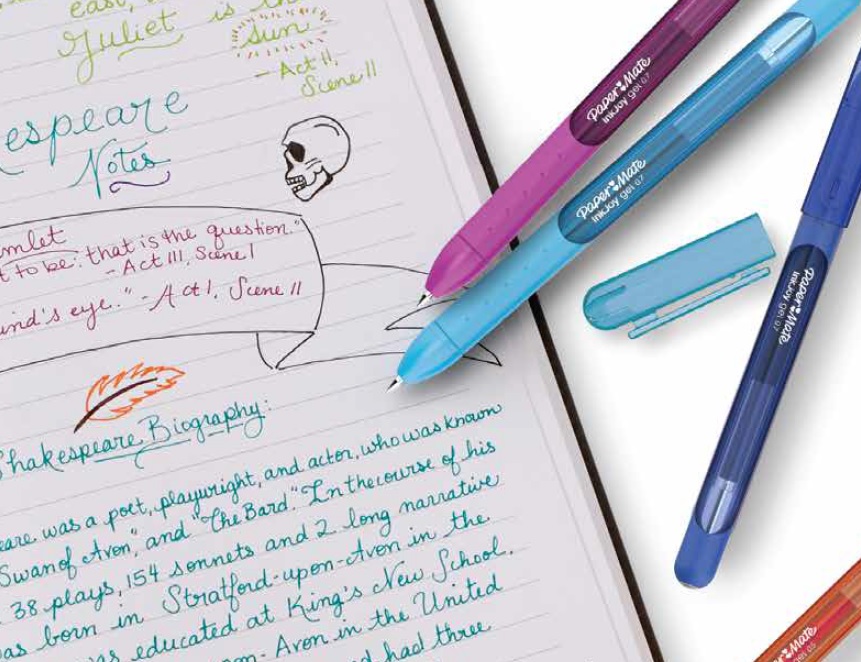 east,
Juliet is the
sun.
- Act II,
Scene II
espeare
Notes
amlet
t to be: that is the question."
- Act III, Scene I
ind's eye." - Act I, Scene II
Shakespeare Biography:
eare was a poet, playwright, and actor, who was known
Swan of Avon", and "The Bard." In the course of his
38 plays, 154 sonnets and 2 long narrative
as born in Stratford-upon-Avon in the
as educated at King's New School.
on-Avon in the United
d had three
Paper Mate
InkJoy gel 0.7
Paper Mate
InkJoy gel 0.7
Paper Mate
InkJoy gel 0.7
Paper Mate